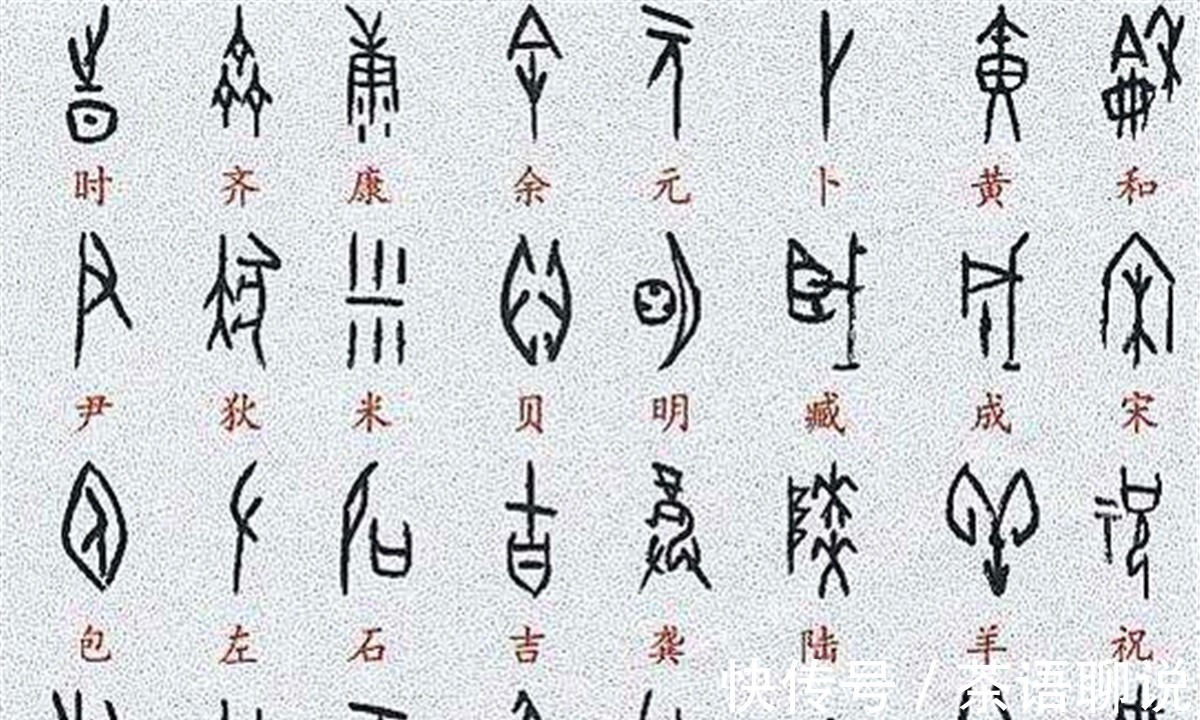 时 齐 康 余 元 卜 黄 和
尹 狄 米 贝 明 臧 成 宋
包 左 石 吉 龚 陆 羊 祝
快传号 / 茶语聊说